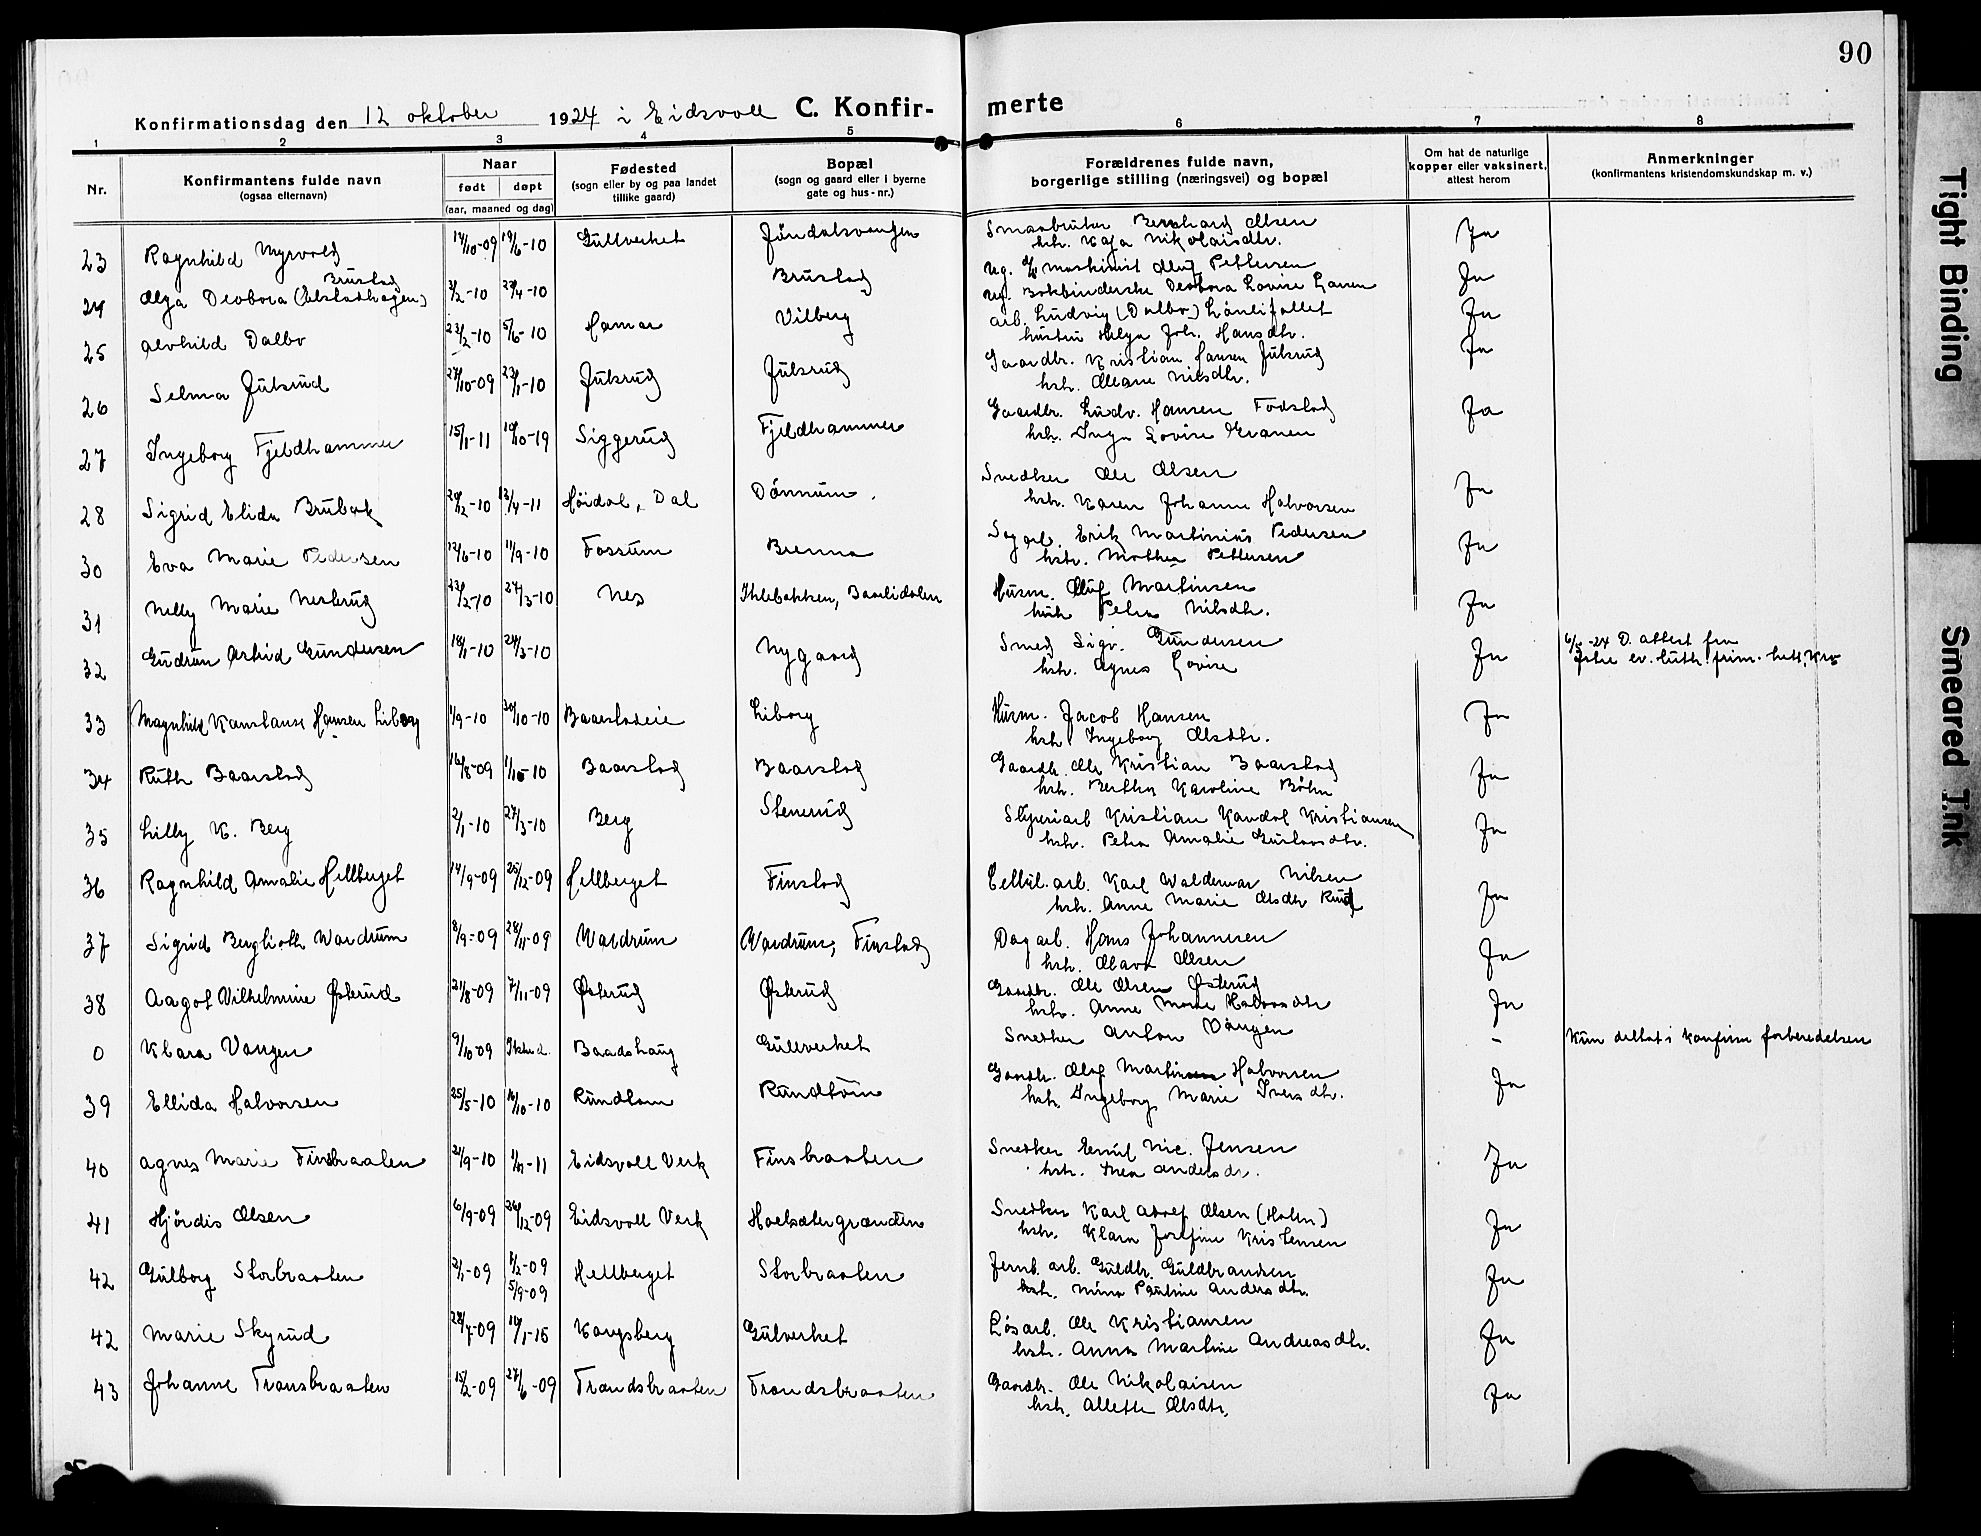 90
Konfirmationsdag den 12 oktober 1924 i Eidsvoll C. Konfir- merte
1 2 3 4 5 6 7 8
Nr. Konfirmantens fulde navn (ogsaa efternavn) Naar født døpt (aar, maaned og dag) Fødested (sogn eller by og paa landet tillike gaard) Bopæl (sogn og gaard eller i byerne gate og hus-nr.) Forældrenes fulde navn, borgerlige stilling (næringsvei) og bopæl Om hat de naturlige kopper eller vaksinert, attest herom Anmerkninger (konfirmantens kristendomskundskap m. v.)
23 Ragnhild Nysvold 14/10-09 19/6-10 Gullverket Jøndalsvangen Smaabruker Bernhard Olsen Ja
hstr. Kaja Nikolaisdtr.
Brustad
24 Olga Deobora 3/2-10 27/4-10 Brustad ug. maskinist Oluf Pettersen Ja
ug. Bokbinderske Deobora Lovise
25 Alvhild Dalbo 23/2-10 5/6-10 Hamar Vilberg arb. Ludvig (Dalbo) Ja
hustru Helga Joh. Hansdtr.
26 Selma Julsrud 27/10-09 23/1-10 Julsrud Julsrud Gaardbr. Kristian Hansen Julsrud Ja
hstr. Oleane Nilsdtr.
27 Ingeborg Fjeldhammer 15/1-11 10/10-19 Siggerud Fjeldhammer Gaardbr. Ludv. Hansen Fodstad Ja
hstr. Inga Lovise Granen
28 Sigrid Elida Brubak 20/2-10 13/4-11 Høidal, Dal Dønnum. Snedker Ole Olsen Ja
hstr. Karen Johanne Halvorsen
30 Eva Marie Pedersen 12/6-10 11/9-10 Fossum Brenna Dagarb. Erik Martinius Pedersen Ja
hstr. Mathea Pettersen
31 Nelly Marie Nesterud 23/2-10 27/3-10 Nes Ihlebakken, Baalidalen Husm. Oluf Martinsen Ja
hstr. Petra Nilsdtr.
32 Gudrun Astrid Gundersen 18/1-10 24/3-10 Nygaard Smed Sigv. Gundersen Ja 6/5-24 D. attest fra
hstr. Agnes Lovise ev. luth. frim.
33 Magnhild Konstanse Hansen Liborg 1/9-10 30/10-10 Baarstadeie Liborg Husm. Jacob Hansen Ja
hstr. Ingeborg Olsdtr.
34 Ruth Baarstad 16/8-09 1/10-10 Baarstad Baarstad Gaardbr. Ole Kristian Baarstad Ja
hstr. Bertha Karoline Bøhn
35 Lilly K. Berg 2/1-10 27/3-10 Berg Stenerud Sliperiarb Kristian Kandol Kristiansen Ja
hstr. Petra Amalie Gulovsdtr.
36 Ragnhild Amalie Hellberget 14/9-09 25/12-09 Hellberget Finstad Cellul. arb. Karl Waldemar Nilsen Ja
hstr. Anne Marie Olsdtr Ruud
37 Sigrid Berglioth Wardrum 8/9-09 28/11-09 Wardrum Wardrum, Finstad Dagarb. Hans Johannesen Ja
hstr. Olava Olsen
38 Aagot Vilhelmine Østerud 21/8-09 7/11-09 Østerud Østerud Gaardbr. Ole Olsen Østerud Ja
hstr. Anne Marie Halvorsdtr
0 Klara Vangen 9/10-09 Baadshaug Gullverket Snedker Anton Vangen - Kun deltat i konfirm forberedelsen
39 Ellida Halvorsen 25/5-10 16/10-10 Rundtom Rundtom Gaardbr. Olaf Martinsen Halvorsen Ja
hstr. Ingeborg Marie Iversdtr.
40 Agnes Marie Finsbraaten 21/9-10 1/1-11 Eidsvoll Verk Finsbraaten Snedker Emil Nic. Jensen Ja
hstr. Thea Andersdr.
41 Hjørdis Olsen 6/9-09 26/12-09 Eidsvoll Verk Holsætergrænden Snedker Karl Adolf Olsen (Holm) Ja
hstr. Klara Josefine Kristensen
42 Gulborg Storbraaten 2/1-09 7/2-09 5/9-09 Hellberget Storbraaten Jernb. arb. Guldbr. Guldbrandsen Ja
hstr. Mina Pauline Andersdtr.
42 Marie Skyrud 28/7-09 10/1-15 Kongsberg Gulverket Løsarb. Ole Kristiansen Ja
hstr. Anna Martine Andreasdtr.
43 Johanne Transbraaten 15/2-09 27/6-09 Trandsbraaten Trandsbraaten Gaardbr. Ole Nikolaisen Ja
hstr. Allette Olsdtr.
Tight Binding
Smeared Ink